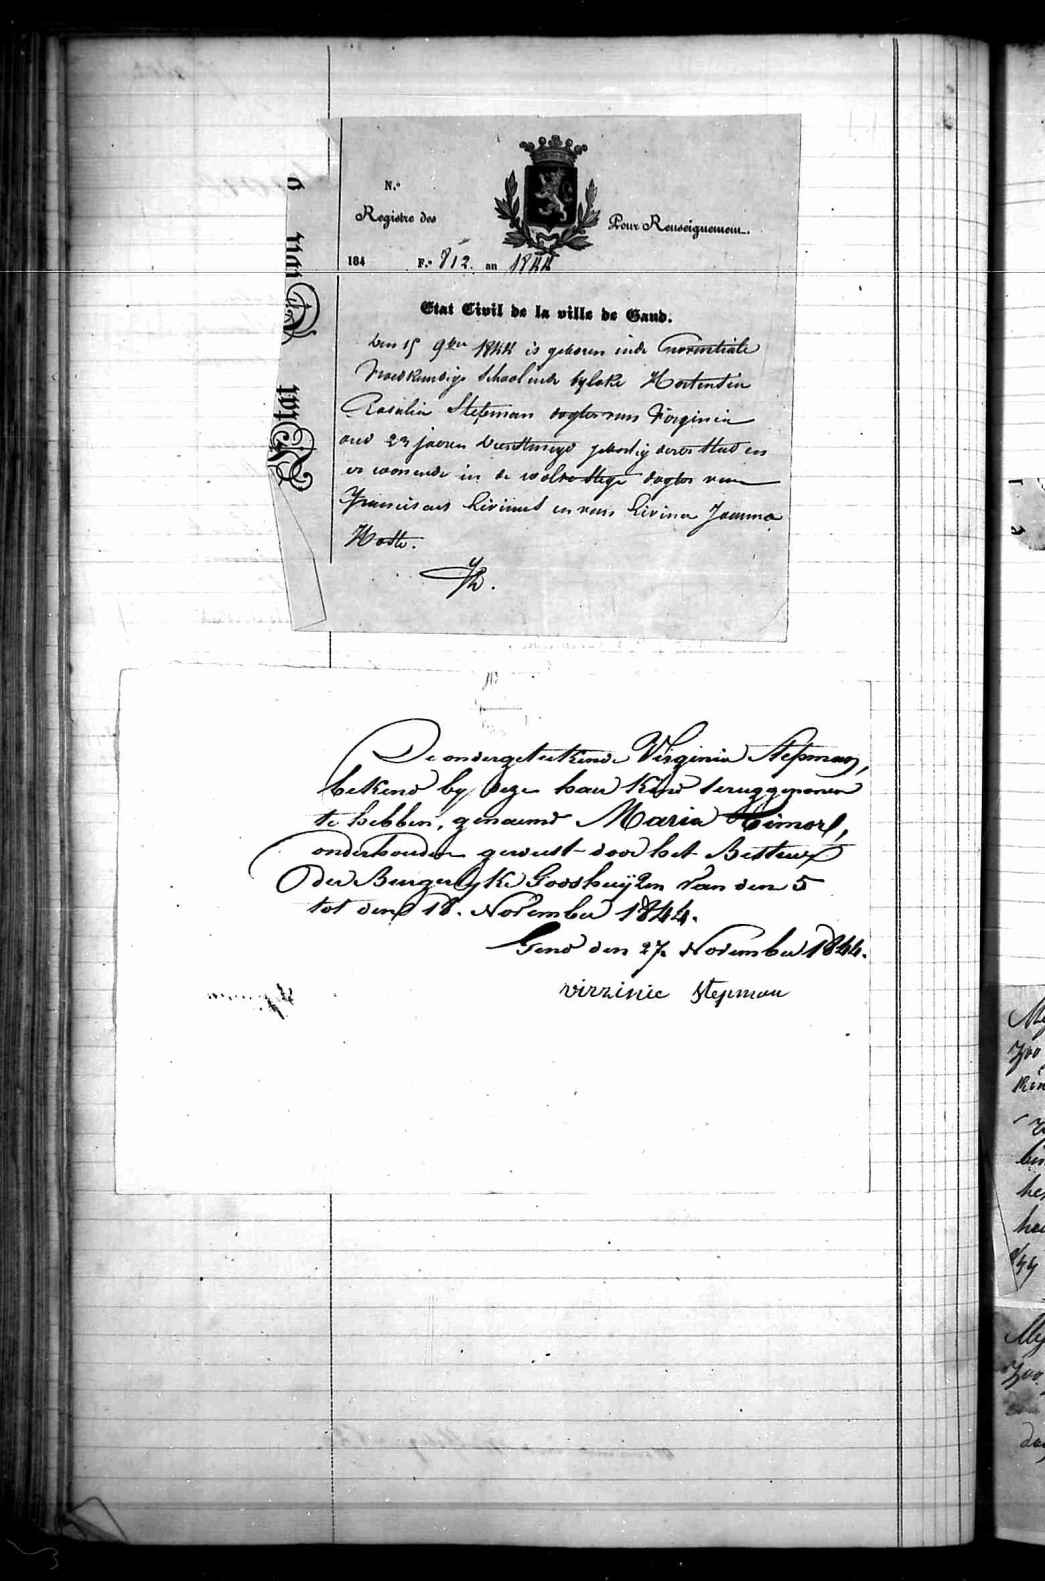 N.º
Registre des
Pour Renseignement.
184 F.º 812. an 1844
Etat Civil de la ville de Gand.
Den 15 9ber 1844 is geboren inde provintiale
Vroedkundige School inde byloke Hortentia
Rosalia Stepman dogter van Virginia
oud 23 jaeren dienstmeyd geboortig dezer stad en
er woonende in de wolve stege dogter van
Franciscus Livinus en van Livina Joanna
Hoste.
De ondergeteekende Virginia Stepman,
bekend by deze haer kind teruggenomen
te hebben, genaemd Maria
onderhouden geweest door het Bestuer
der Burgerlyke Godshuyzen van den 5
tot den 18. November 1844.
Gend den 27. November 1844.
virzinie stepman